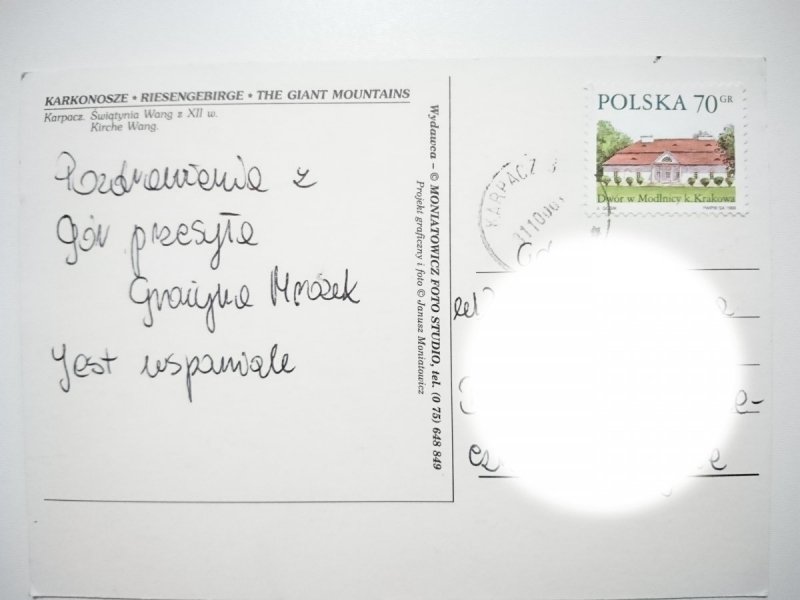 KARKONOSZE * RIESENGEBIRGE * THE GIANT MOUNTAINS
Karpacz. Świątynia Wang z XII w.
Kirche Wang.
Pozdrowienia z
gór przesyła
Grażyna Mrożek
Jest wspaniale
Wydawca - © MONIATOWICZ FOTO STUDIO, tel. (0 75) 648 849
Projekt graficzny i foto © Janusz Moniatowicz
POLSKA 70 GR
Dwór w Modlnicy k. Krakowa
KARPACZ